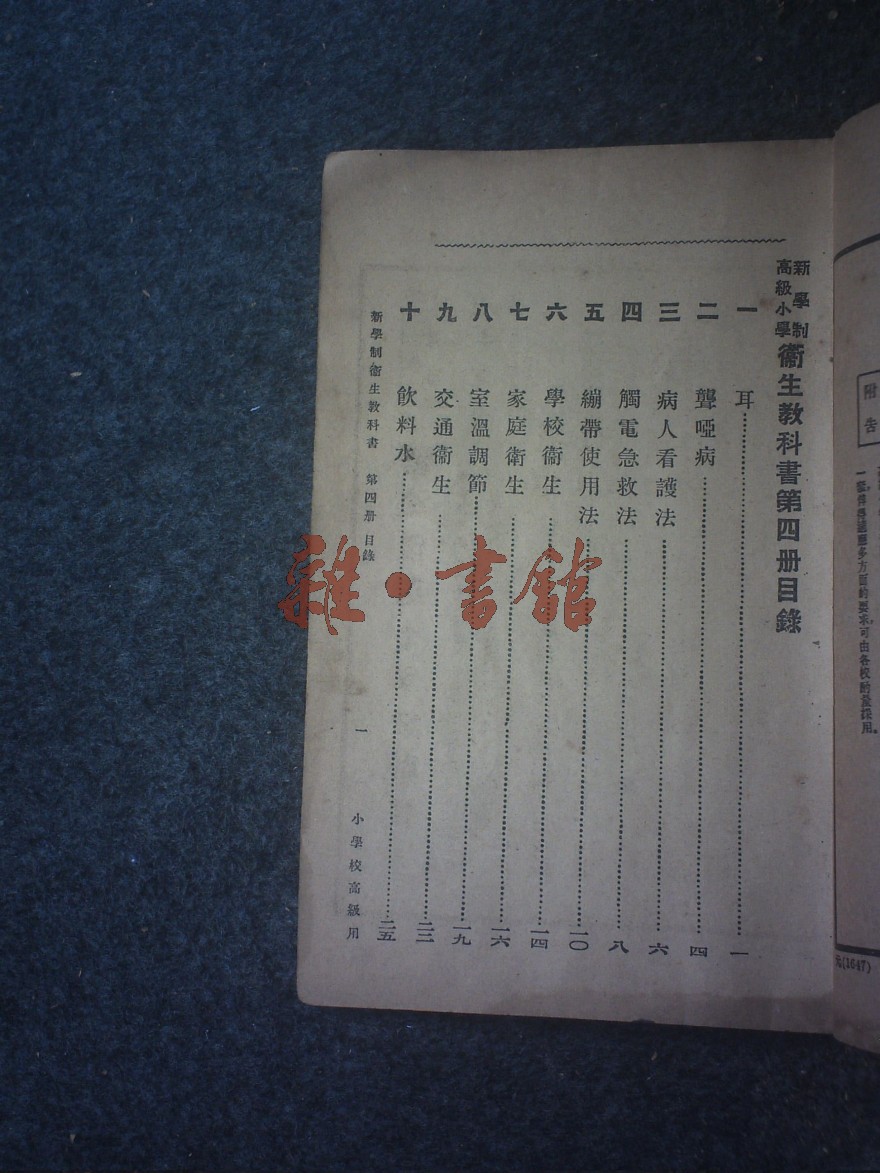 新學制
高級小學
衞生教科書第四册目錄
一 耳 一
二 聾啞病 四
三 病人看護法 六
四 觸電急救法 八
五 繃帶使用法 一〇
六 學校衞生 一四
七 家庭衞生 一六
八 室溫調節 一九
九 交通衞生 二三
十 飲料水 二五
新學制衞生教科書 第四册 目錄 一 小學校高級用
附告
多方面的要求,可由各校酌量採用。
元(1647)
雜·書館